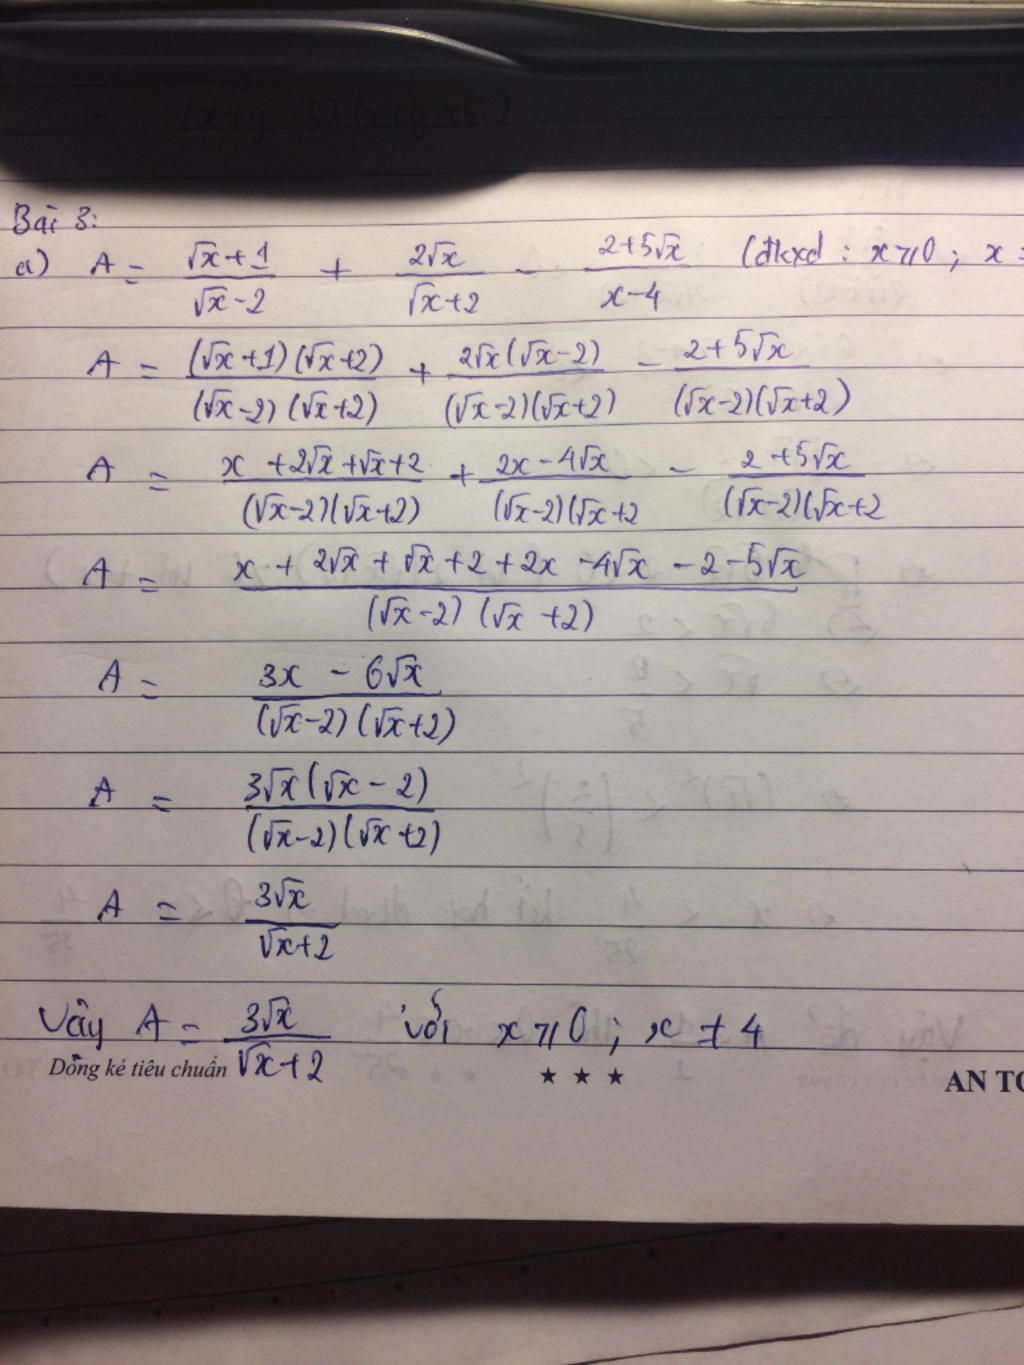 = (x+y-5)(x+y+5)
Bài 3:
a) A = (√x+1)/(√x-2) + 2√x/(√x+2) - (2+5√x)/(x-4) (đkxđ : x ≥ 0 ; x
A = (√x+1)(√x+2)/(√x-2)(√x+2) + 2√x(√x-2)/(√x-2)(√x+2) - (2+5√x)/(√x-2)(√x+2)
A = (x+2√x+√x+2)/(√x-2)(√x+2) + (2x-4√x)/(√x-2)(√x+2 - (2+5√x)/(√x-2)(√x+2
A = (x+2√x+√x+2+2x-4√x-2-5√x)/(√x-2)(√x+2)
A = (3x-6√x)/(√x-2)(√x+2)
A = 3√x(√x-2)/(√x-2)(√x+2)
A = 3√x/(√x+2)
Vậy A = 3√x/(√x+2) với x ≥ 0 ; x ≠ 4
Dòng kẻ tiêu chuẩn ★ ★ ★ AN TO